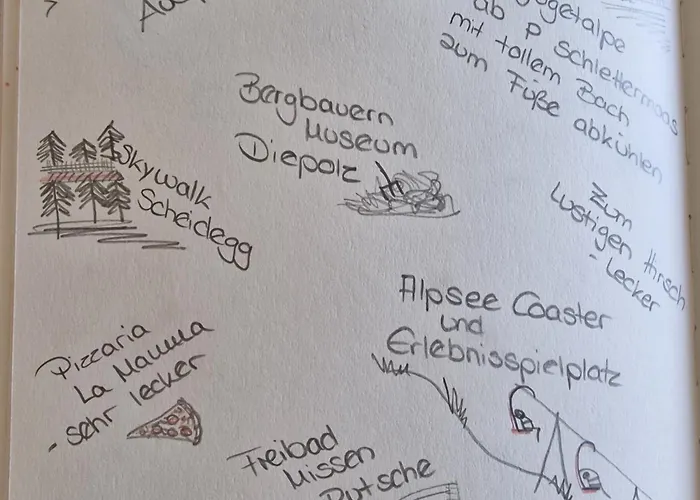 ab P Schlettermoos
mit tollem Bach
zum Füße abkühlen
Bergbauern
Museum
Diepolz
Skywalk
Scheidegg
Zum
Lustigen Hirsch
- Lecker
Alpsee Coaster
und
Erlebnisspielplatz
Pizzaria
La Mamma
- sehr lecker
Freibad
Missen
Rutsche